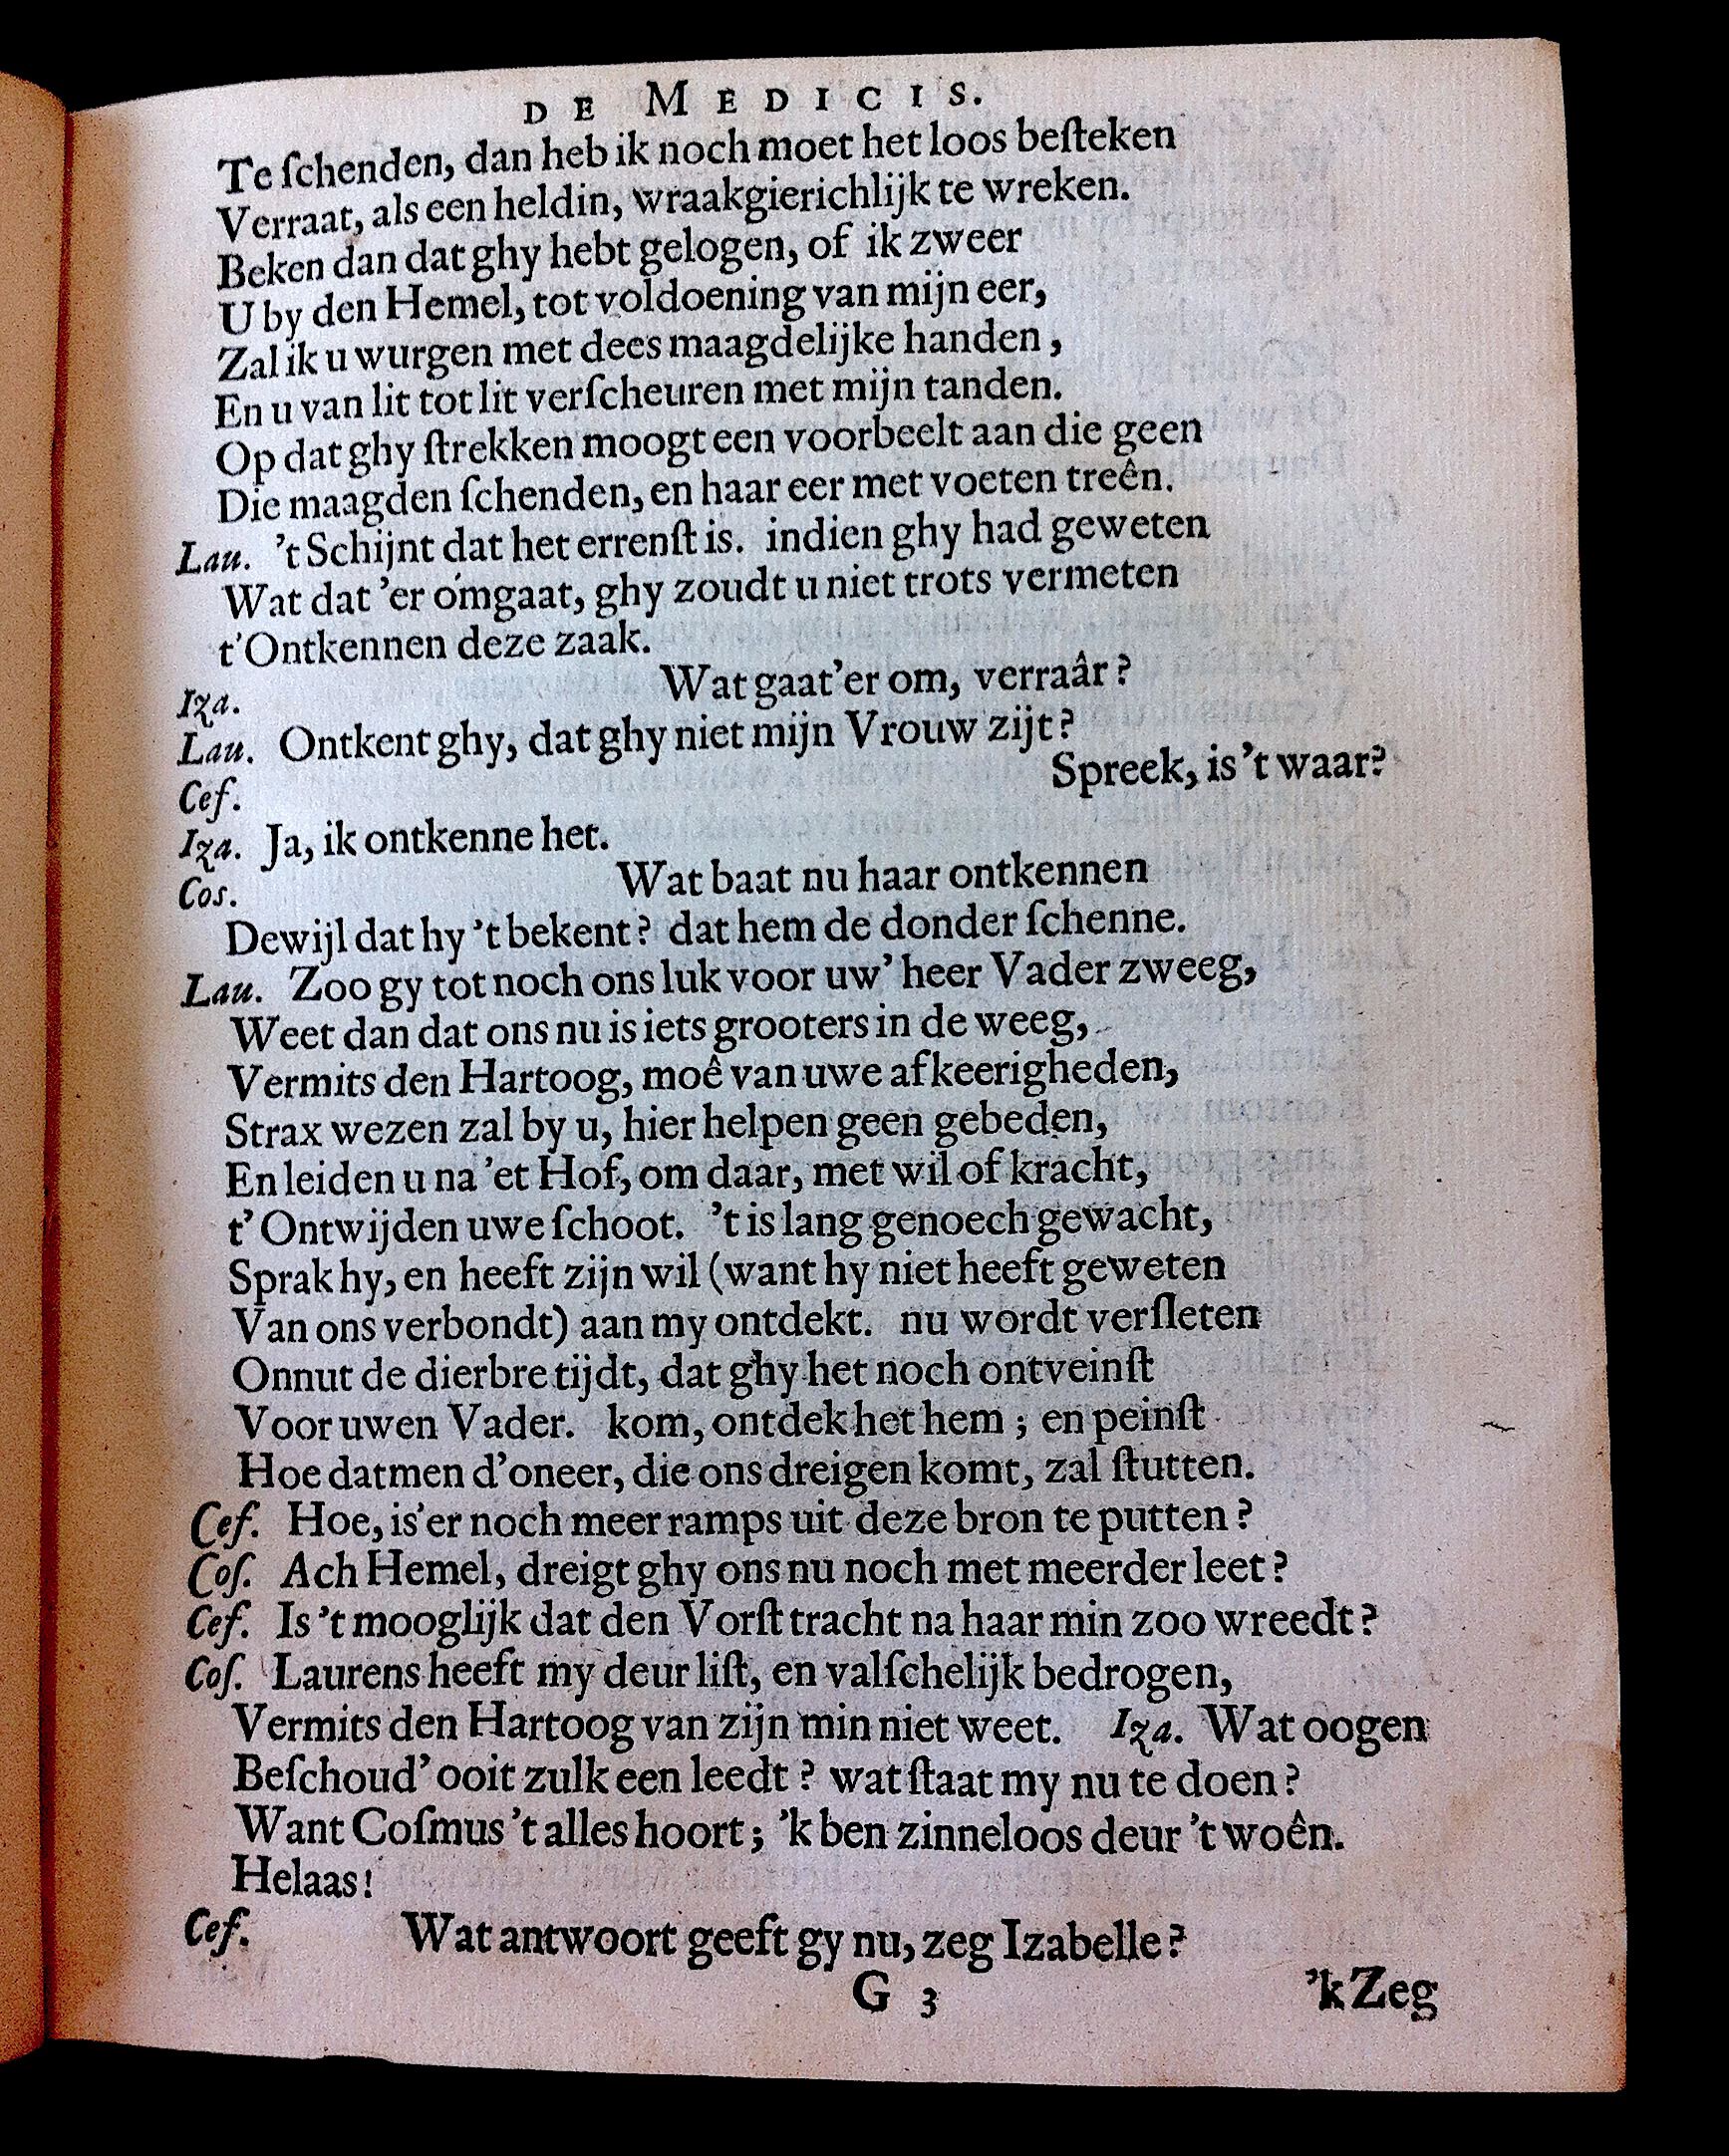 DE MEDICIS.
Te ſchenden, dan heb ik noch moet het loos beſteken
Verraat, als een heldin, wraakgierichlijk te wreken.
Beken dan dat ghy hebt gelogen, of ik zweer
U by den Hemel, tot voldoening van mijn eer,
Zal ik u wurgen met dees maagdelijke handen,
En u van lit tot lit verſcheuren met mijn tanden.
Op dat ghy ſtrekken moogt een voorbeelt aan die geen
Die maagden ſchenden, en haar eer met voeten treên.
Lau. 't Schijnt dat het errenſt is. indien ghy had geweten
Wat dat 'er omgaat, ghy zoudt u niet trots vermeten
t'Ontkennen deze zaak.
Iza. Wat gaat'er om, verraâr?
Lau. Ontkent ghy, dat ghy niet mijn Vrouw zijt?
Ceſ. Spreek, is 't waar?
Iza. Ja, ik ontkenne het.
Cos. Wat baat nu haar ontkennen
Dewijl dat hy 't bekent? dat hem de donder ſchenne.
Lau. Zoo gy tot noch ons luk voor uw' heer Vader zweeg,
Weet dan dat ons nu is iets grooters in de weeg,
Vermits den Hartoog, moê van uwe afkeerigheden,
Strax wezen zal by u, hier helpen geen gebeden,
En leiden u na 'et Hof, om daar, met wil of kracht,
t' Ontwijden uwe ſchoot. 't is lang genoech gewacht,
Sprak hy, en heeft zijn wil (want hy niet heeft geweten
Van ons verbondt) aan my ontdekt. nu wordt verſleten
Onnut de dierbre tijdt, dat ghy het noch ontveinſt
Voor uwen Vader. kom, ontdek het hem; en peinſt
Hoe datmen d'oneer, die ons dreigen komt, zal ſtutten.
Ceſ. Hoe, is'er noch meer ramps uit deze bron te putten?
Coſ. Ach Hemel, dreigt ghy ons nu noch met meerder leet?
Ceſ. Is 't mooglijk dat den Vorſt tracht na haar min zoo wreedt?
Coſ. Laurens heeft my deur liſt, en valſchelijk bedrogen,
Vermits den Hartoog van zijn min niet weet. Iza. Wat oogen
Beſchoud' ooit zulk een leedt? wat ſtaat my nu te doen?
Want Coſmus 't alles hoort; 'k ben zinneloos deur 't woên.
Helaas!
Ceſ. Wat antwoort geeft gy nu, zeg Izabelle?
G 3 'k Zeg